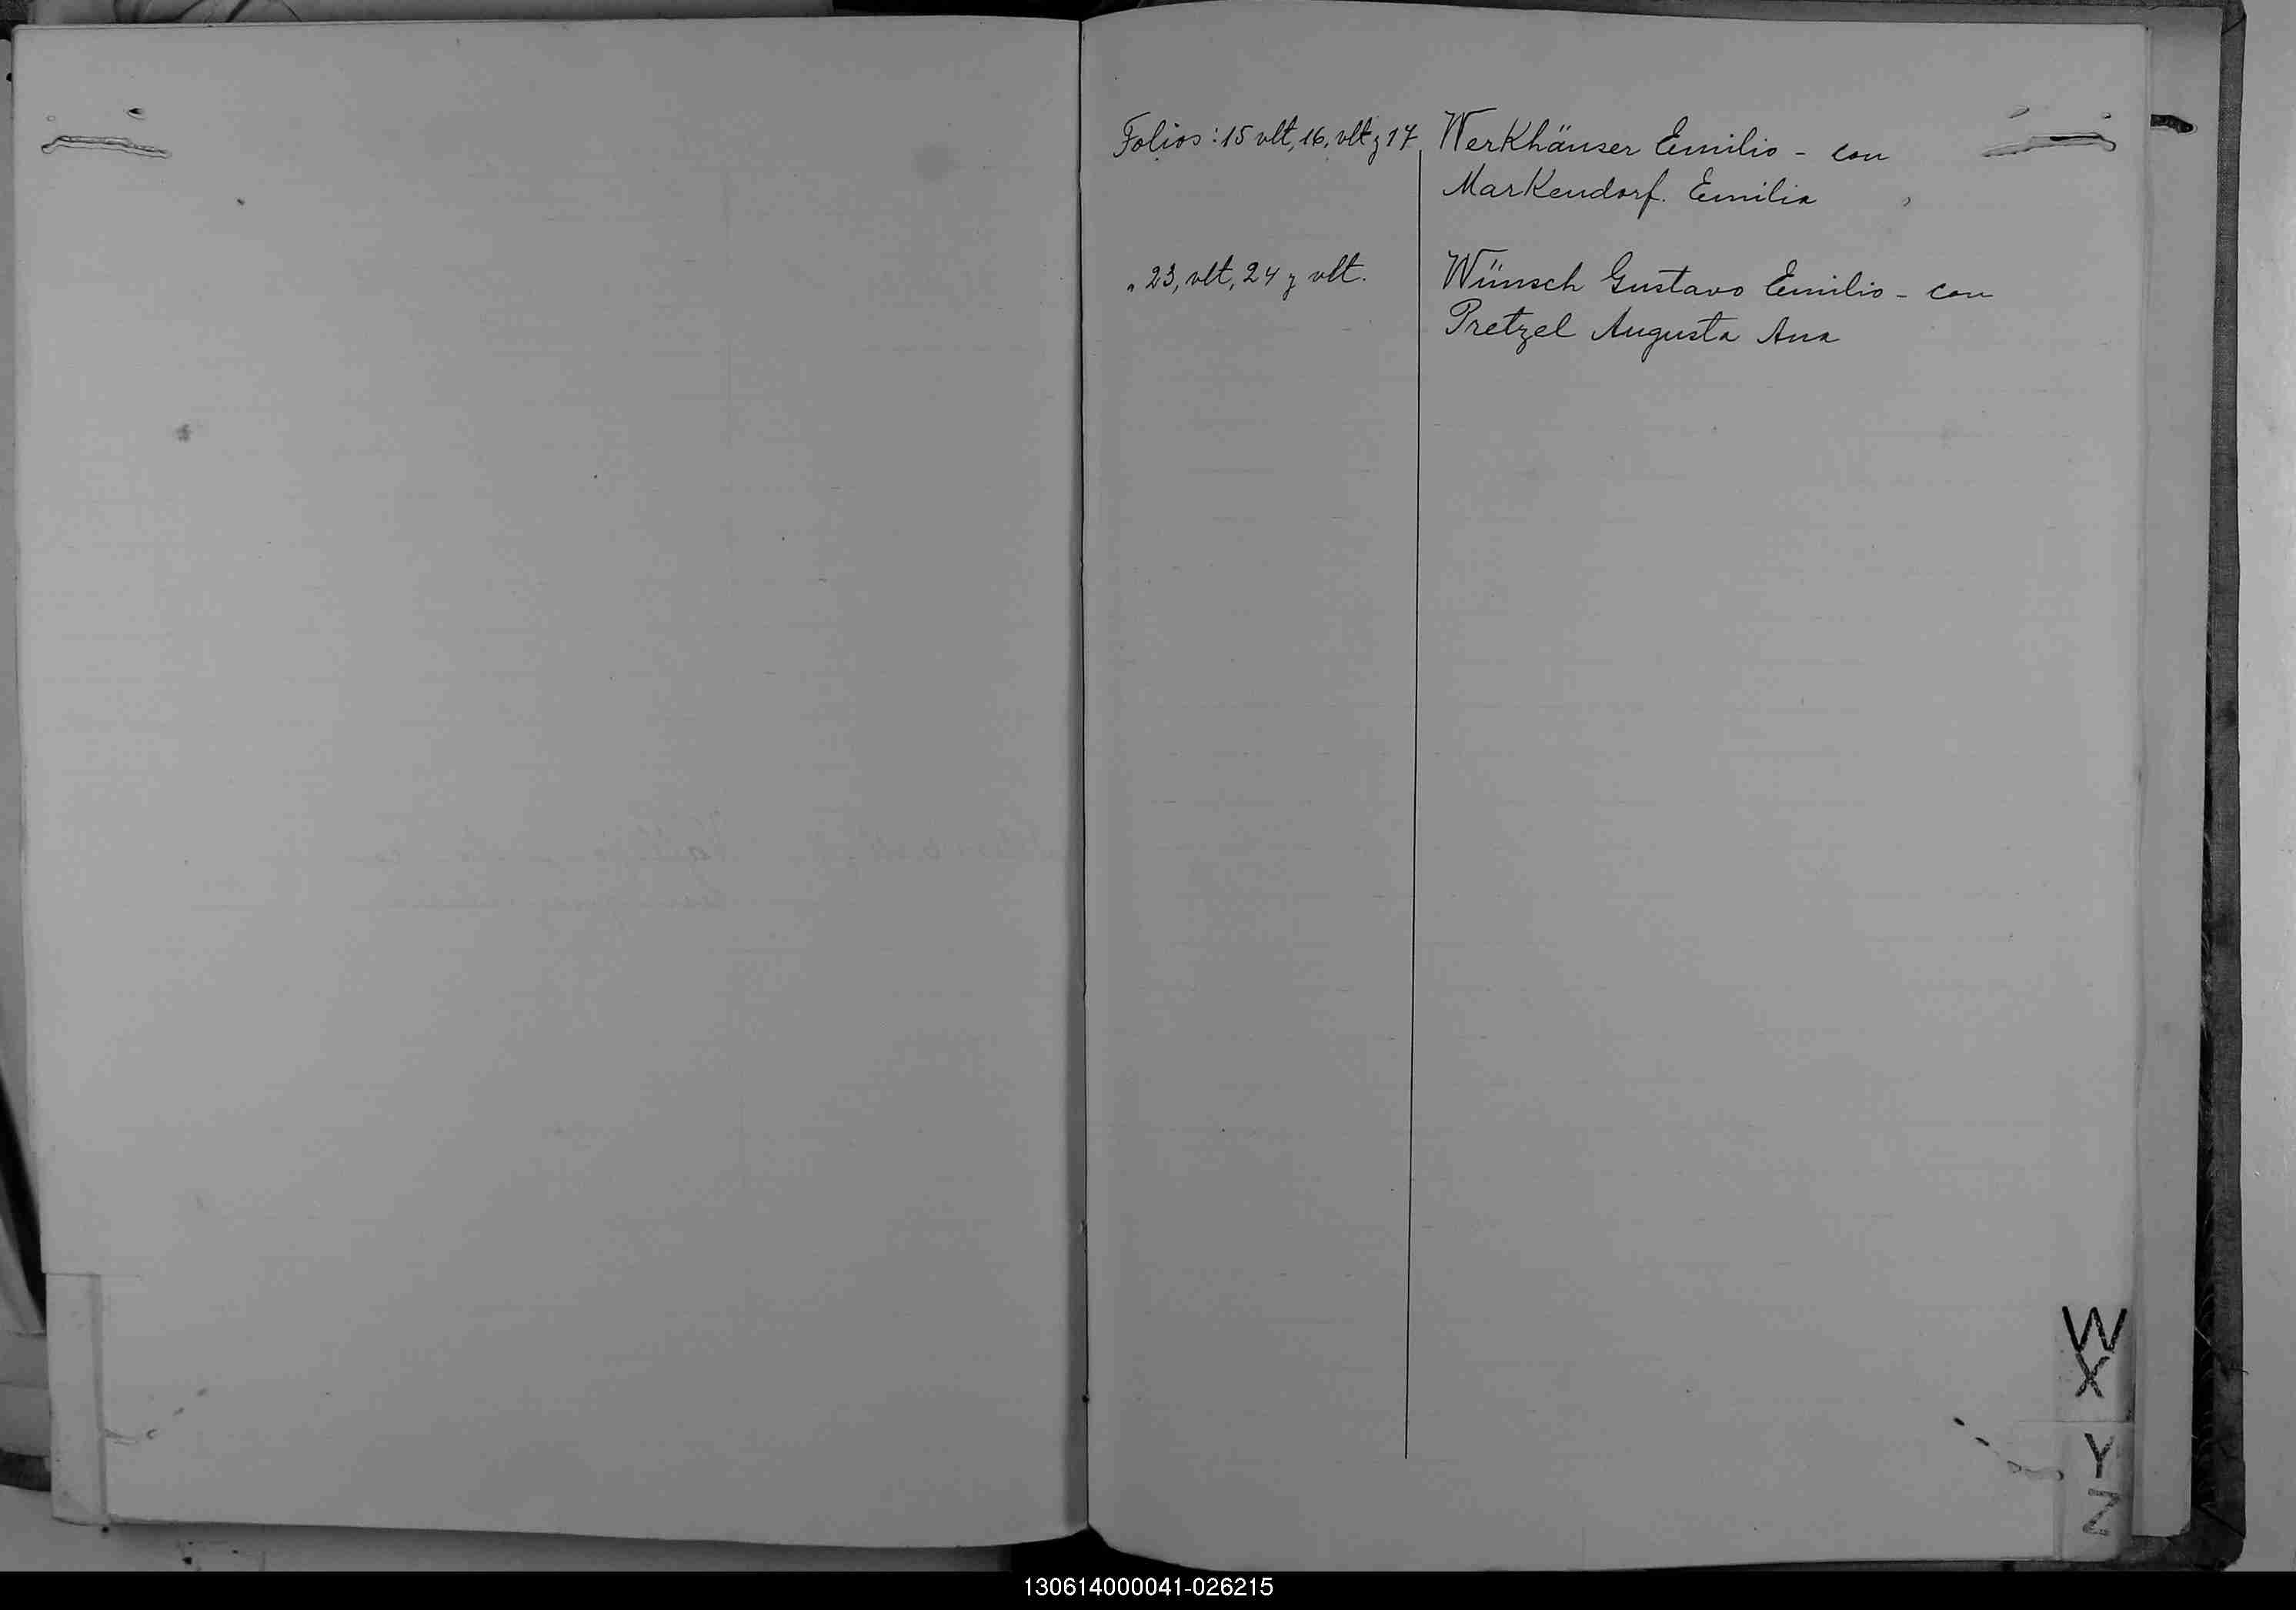 Folios: 15 vlt, 16, vlt y 17 Werkhäuser Emilio - con
Markendorf. Emilia
" 23, vlt, 24 y vlt. Wünsch Gustavo Emilio - con
Pretzel Augusta Ana
W
X
Y
Z
130614000041-026215